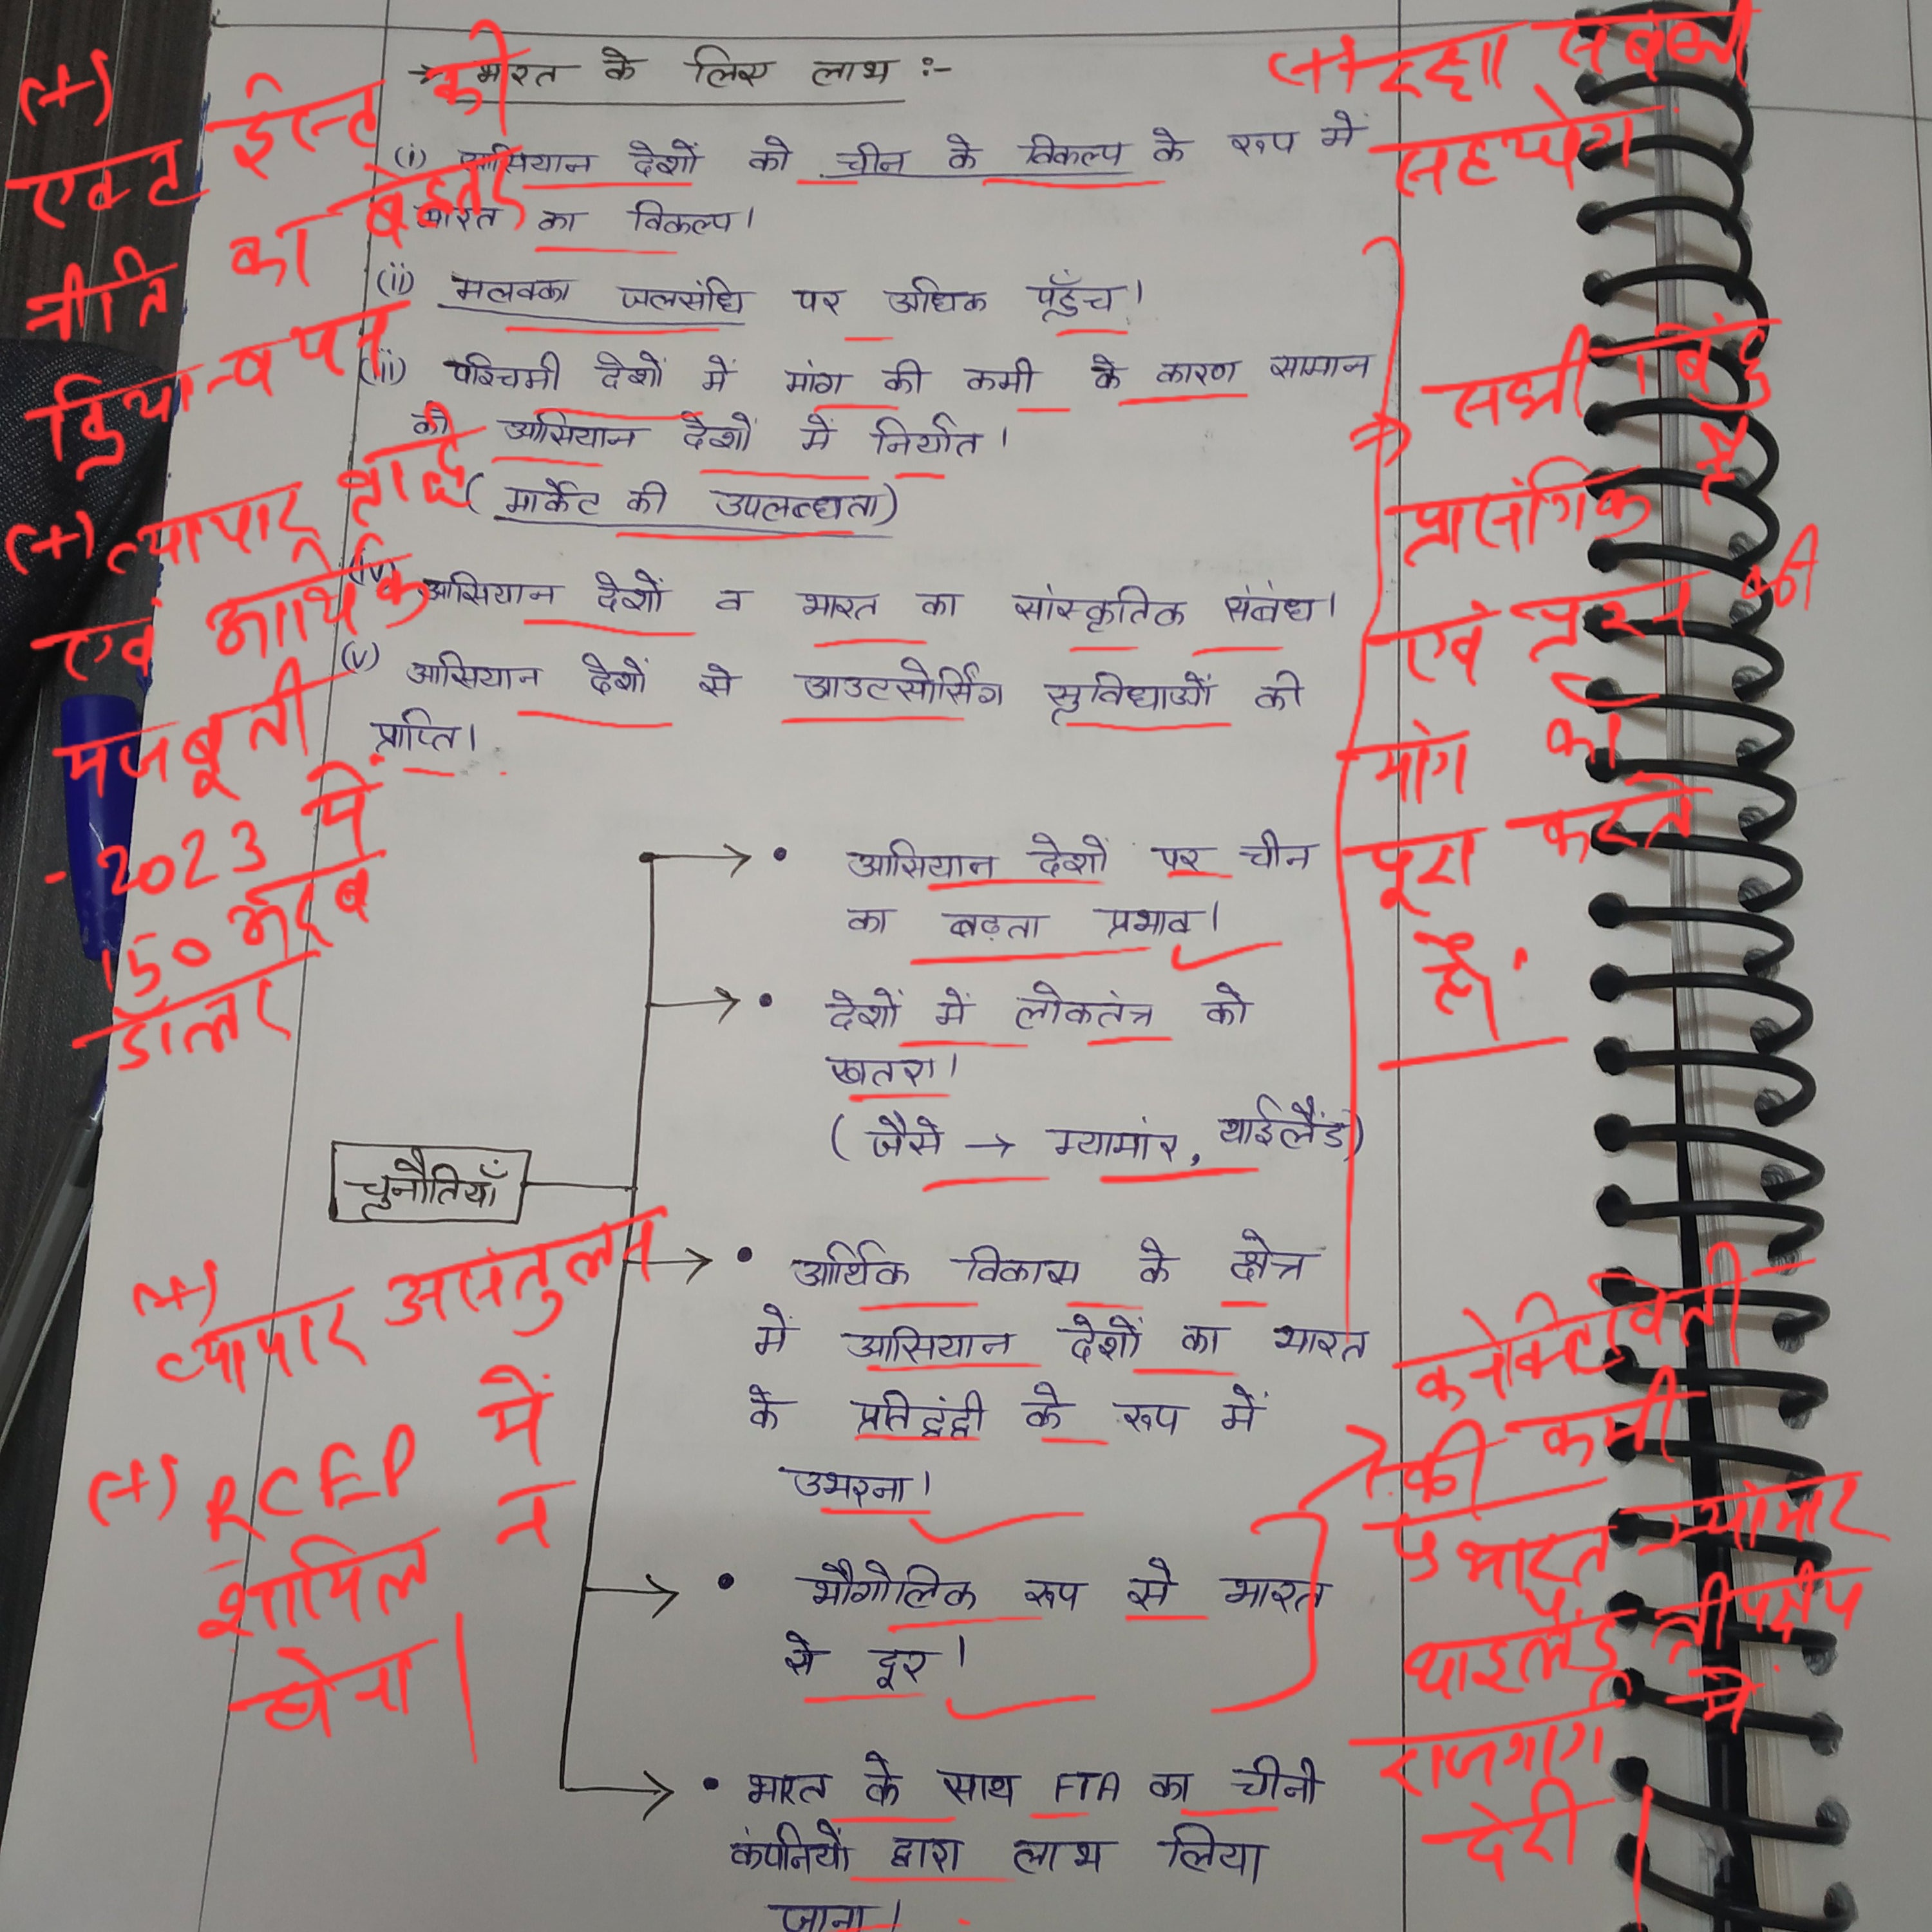 → भारत के लिए लाभ :-
(i) आसियान देशों को चीन के विकल्प के रूप में
भारत का विकल्प।
(ii) मलक्का जलसंधि पर अधिक पहुँच।
(iii) पश्चिमी देशों में मांग की कमी के कारण सामान
की आसियान देशों में निर्यात।
(मार्केट की उपलब्धता)
(iv) आसियान देशों व भारत का सांस्कृतिक संबंध।
(v) आसियान देशों से आउटसोर्सिंग सुविधाओं की
प्राप्ति।
चुनौतियाँ
→ • आसियान देशों पर चीन
का बढ़ता प्रभाव।
→ • देशों में लोकतंत्र को
खतरा।
(जैसे → म्यामांर, थाईलैंड)
→ • आर्थिक विकास के क्षेत्र
में आसियान देशों का भारत
के प्रतिद्वंद्वी के रूप में
उभरना।
→ • भौगोलिक रूप से भारत
से दूर।
→ • भारत के साथ FTA का चीनी
कंपनियों द्वारा लाभ लिया
जाना।
(+)
एक्ट ईस्ट की
नीति का बेहतर
क्रियान्वयन
(+) व्यापार वृद्धि
एवं आर्थिक
मजबूती
- 2023 में
150 अरब
डॉलर
(+)
व्यापार असंतुलन
(+) RCEP में
शामिल न
होना।
(+) रक्षा संबंधी
सहयोग
⇒ सभी बिंदु
प्रासंगिक हैं
एवं प्रश्न की
मांग को
पूरा करते
हैं।
→ कनेक्टिविटी
की कमी
↳ भारत म्यांमार
थाइलैंड त्रीपक्षीय
राजमार्ग में
देरी।